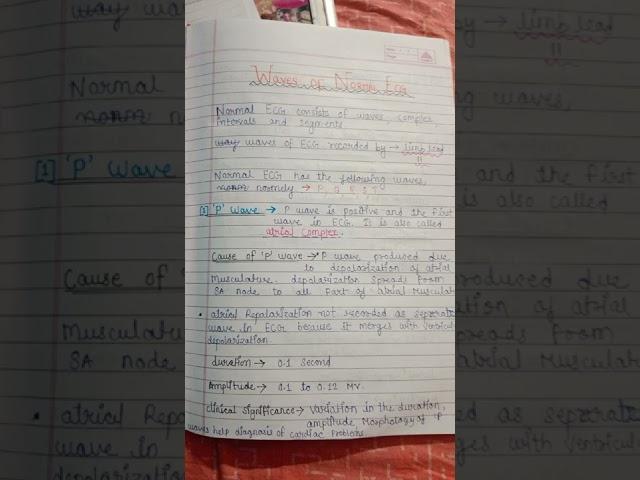 Waves of Normal ECG
Normal ECG consists of waves, complex,
intervals and segments.
waves of ECG recorded by → limb lead
II
Normal ECG has the following waves,
nomely → P, Q, R, S, T
[1] 'P' Wave → P wave is positive and the first
wave in ECG. It is also called
atrial complex.
Cause of 'P' wave → P wave produced due
to depolarization of atrial
Musculature. depolarization spreads from
SA node to all Part of atrial Musculat
• atrial Repolarization not recorded as seperate
wave in ECG because it merges with ventricul
depolarization.
duration → 0.1 Second
Amplitude → 0.1 to 0.12 MV.
Clinical Significance → Variation in the duration,
amplitude Morphology of 'P'
waves help diagnosis of cardiac Problems.